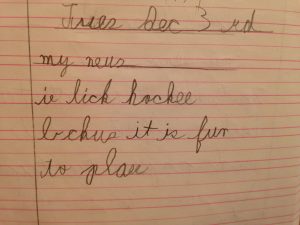 Tues Dec 3 rd
my neus
ie lick hockee
bchus it is fun
to plae